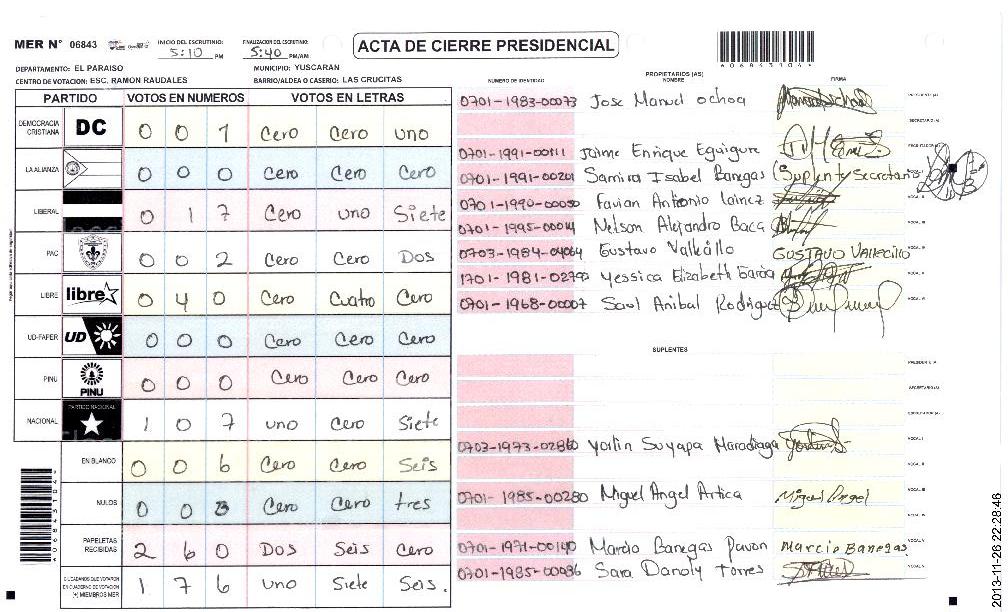 MER N° 06843 INICIO DEL ESCRUTINIO: 5:10 PM FINALIZACION DEL ESCRUTINIO: 5:40 PM/AM ACTA DE CIERRE PRESIDENCIAL
DEPARTAMENTO: EL PARAISO MUNICIPIO: YUSCARAN
CENTRO DE VOTACION: ESC. RAMON RAUDALES BARRIO/ALDEA O CASERIO: LAS CRUCITAS
PARTIDO VOTOS EN NUMEROS VOTOS EN LETRAS
DEMOCRACIA CRISTIANA DC 0 0 1 Cero Cero uno
LA ALIANZA 0 0 0 Cero Cero Cero
LIBERAL 0 1 7 Cero uno Siete
PAC 0 0 2 Cero Cero Dos
LIBRE libre 0 4 0 Cero Cuatro Cero
UD-FAPER UD 0 0 0 Cero Cero Cero
PINU PINU 0 0 0 Cero Cero Cero
NACIONAL PARTIDO NACIONAL 1 0 7 uno Cero Siete
EN BLANCO 0 0 6 Cero Cero Seis
NULOS 0 0 3 Cero Cero tres
PAPELETAS RECIBIDAS 2 6 0 Dos Seis Cero
CIUDADANOS QUE VOTARON EN CUADERNO DE VOTACION (+) MIEMBROS MER 1 7 6 uno Siete Seis.
PROPIETARIOS (AS)
NUMERO DE IDENTIDAD NOMBRE FIRMA
0701-1983-00073 Jose Manuel Ochoa
SECRETARIO (A)
0701-1991-00111 Jaime Enrique Eguigure
0701-1991-00201 Samira Isabel Banegas (Suplente Secretario
0701-1990-00050 Favian Antonio Lainez
0701-1995-00014 Nelson Alejandro Baca
0703-1984-04064 Gustavo Vallecillo GUSTAVO Vallecillo
1701-1981-02790 Yessica Elizabeth Garcia
0701-1968-00007 Saul Anibal Rodriguez
SUPLENTES
PRESIDENTE (A)
SECRETARIO (A)
ESCRUTADOR (A)
0703-1973-02860 Yorlin Suyapa Maradiaga VOCAL I
VOCAL II
0701-1985-00280 Miguel Angel Artica Miguel Angel VOCAL III
VOCAL IV
0701-1971-00140 Marcio Banegas Pavon Marcio Banegas VOCAL V
0701-1985-00086 Sara Danoly Torres
2013-11-26 22:28:46